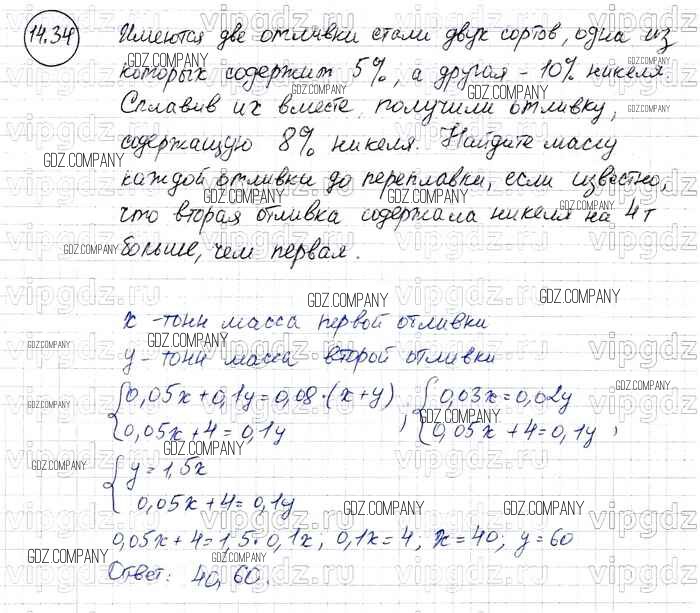 14.34 Имеются две отливки стали двух сортов, одна из
которых содержит 5%, а другая - 10% никеля.
Сплавив их вместе, получили отливку,
содержащую 8% никеля. Найдите массу
каждой отливки до переплавки, если известно,
что вторая отливка содержала никеля на 4т
больше, чем первая.
x - тонн масса первой отливки
y - тонн масса второй отливки
{0,05x+0,1y=0,08·(x+y) , {0,03x=0,02y
0,05x+4=0,1y 0,05x+4=0,1y ,
{y=1,5x
0,05x+4=0,1y
0,05x+4=1,5·0,1x; 0,1x=4; x=40; y=60
Ответ: 40, 60.
GDZ.COMPANY
vipgdz.ru